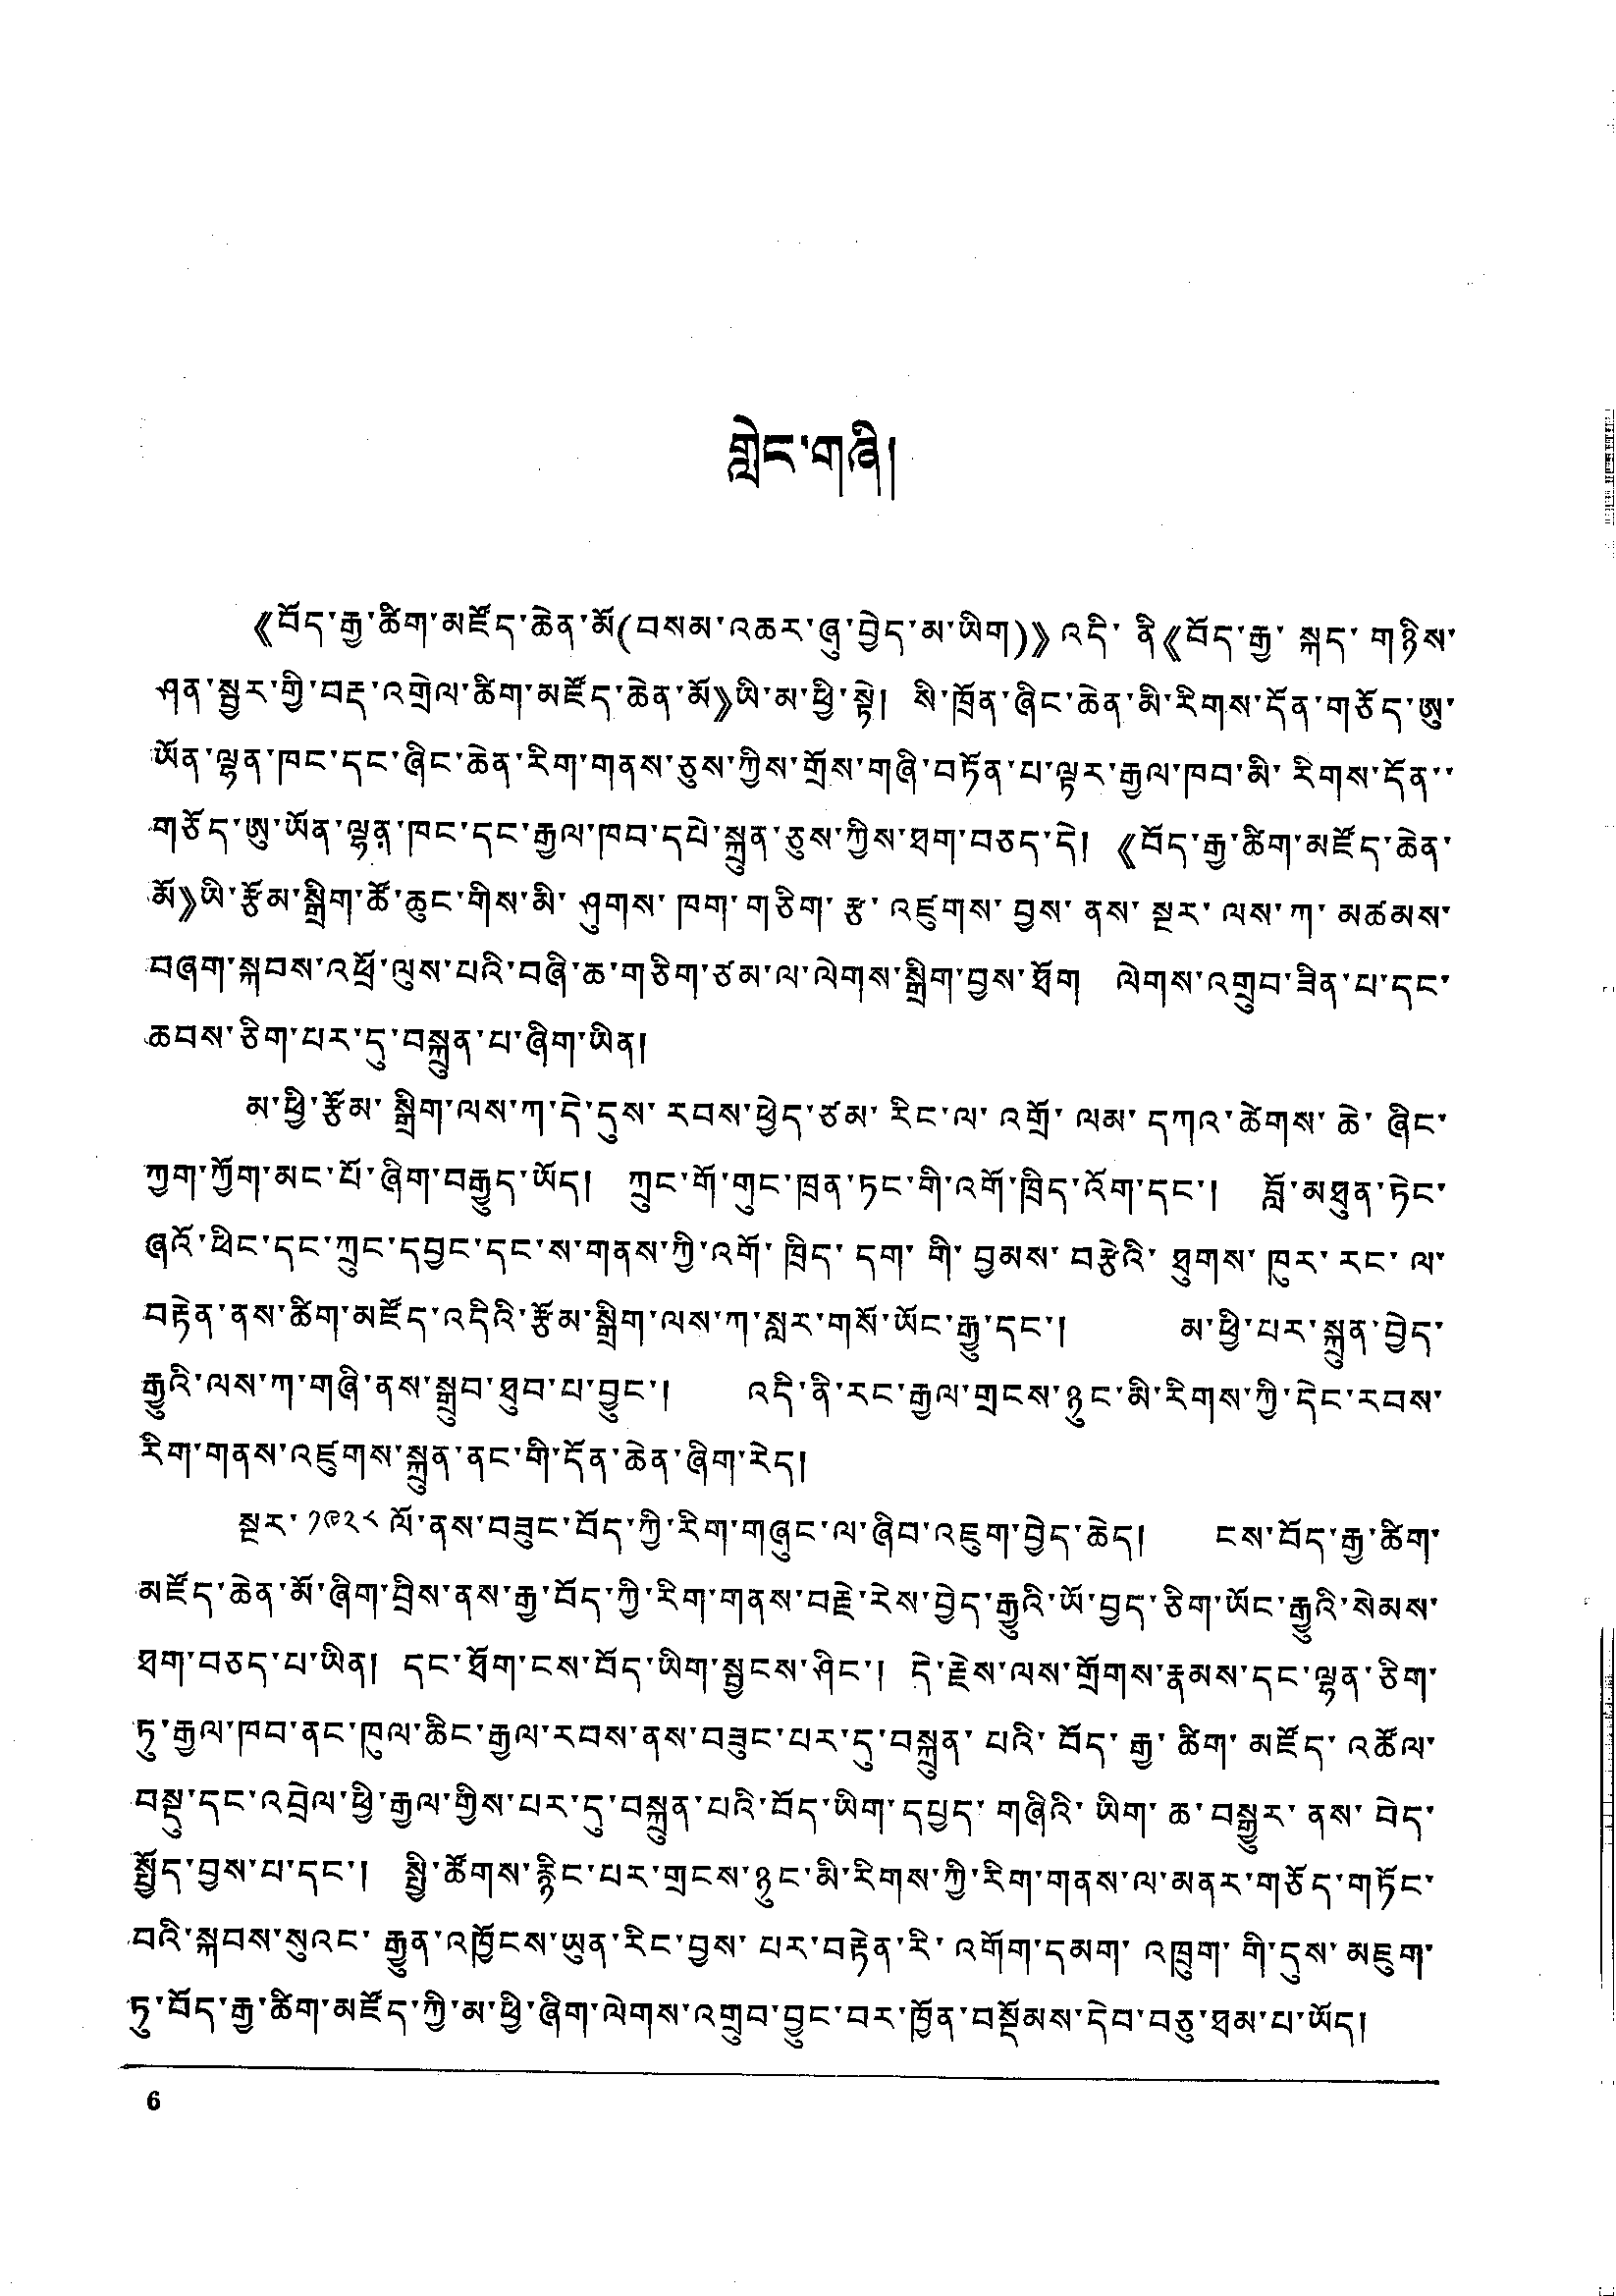 གླེང་གཞི།
《བོད་རྒྱ་ཚིག་མཛོད་ཆེན་མོ(བསམ་འཆར་ཞུ་བྱེད་མ་ཡིག)》འདི་ ནི《བོད་རྒྱ་ སྐད་ གཉིས་
ཤན་སྦྱར་གྱི་བརྡ་འགྲེལ་ཚིག་མཛོད་ཆེན་མོ》ཡི་མ་ཕྱི་སྟེ། སི་ཁྲོན་ཞིང་ཆེན་མི་རིགས་དོན་གཅོད་ཨུ་
ཡོན་ལྷན་ཁང་དང་ཞིང་ཆེན་རིག་གནས་ཅུས་ཀྱིས་གྲོས་གཞི་བཏོན་པ་ལྟར་རྒྱལ་ཁབ་མི་ རིགས་དོན་་
གཅོད་ཨུ་ཡོན་ལྷན་ཁང་དང་རྒྱལ་ཁབ་དཔེ་སྐྲུན་ཅུས་ཀྱིས་ཐག་བཅད་དེ། 《བོད་རྒྱ་ཚིག་མཛོད་ཆེན་
མོ》ཡི་རྩོམ་སྒྲིག་ཚོ་ཆུང་གིས་མི་ ཤུགས་ ཁག་གཅིག་ རྩ་ འཛུགས་ བྱས་ ནས་ སྔར་ ལས་ཀ་ མཚམས་
བཞག་སྐབས་འཕྲོ་ལུས་པའི་བཞི་ཆ་གཅིག་ཙམ་ལ་ལེགས་སྒྲིག་བྱས་ཐོག ལེགས་འགྲུབ་ཟིན་པ་དང་
ཆབས་ཅིག་པར་དུ་བསྐྲུན་པ་ཞིག་ཡིན།
མ་ཕྱི་རྩོམ་ སྒྲིག་ལས་ཀ་དེ་དུས་ རབས་ཕྱེད་ཙམ་ རིང་ལ་ འགྲོ་ ལམ་ དཀའ་ཚེགས་ ཆེ་ ཞིང་
ཀྱག་ཀྱོག་མང་པོ་ཞིག་བརྒྱུད་ཡོད། ཀྲུང་གོ་གུང་ཁྲན་ཏང་གི་འགོ་ཁྲིད་འོག་དང་། བློ་མཐུན་ཏེང་
ཞའོ་ཕིང་དང་ཀྲུང་དབྱང་དང་ས་གནས་ཀྱི་འགོ་ ཁྲིད་ དག་ གི་ བྱམས་ བརྩེའི་ ཐུགས་ ཁུར་ རང་ ལ་
བརྟེན་ནས་ཚིག་མཛོད་འདིའི་རྩོམ་སྒྲིག་ལས་ཀ་སླར་གསོ་ཡོང་རྒྱུ་དང་། མ་ཕྱི་པར་སྐྲུན་བྱེད་
རྒྱུའི་ལས་ཀ་གཞི་ནས་སྒྲུབ་ཐུབ་པ་བྱུང་། འདི་ནི་རང་རྒྱལ་གྲངས་ཉུང་མི་རིགས་ཀྱི་དེང་རབས་
རིག་གནས་འཛུགས་སྐྲུན་ནང་གི་དོན་ཆེན་ཞིག་རེད།
སྔར་ ༡༩༢༨ ལོ་ནས་བཟུང་བོད་ཀྱི་རིག་གཞུང་ལ་ཞིབ་འཇུག་བྱེད་ཆེད། ངས་བོད་རྒྱ་ཚིག་
མཛོད་ཆེན་མོ་ཞིག་བྲིས་ནས་རྒྱ་བོད་ཀྱི་རིག་གནས་བརྗེ་རེས་བྱེད་རྒྱུའི་ཡོ་བྱད་ཅིག་ཡོང་རྒྱུའི་སེམས་
ཐག་བཅད་པ་ཡིན། དང་ཐོག་ངས་བོད་ཡིག་སྦྱངས་ཤིང་། དེ་རྗེས་ལས་གྲོགས་རྣམས་དང་ལྷན་ཅིག་
ཏུ་རྒྱལ་ཁབ་ནང་ཁུལ་ཆིང་རྒྱལ་རབས་ནས་བཟུང་པར་དུ་བསྐྲུན་ པའི་ བོད་ རྒྱ་ ཚིག་ མཛོད་ འཚོལ་
བསྡུ་དང་འབྲེལ་ཕྱི་རྒྱལ་གྱིས་པར་དུ་བསྐྲུན་པའི་བོད་ཡིག་དཔྱད་ གཞིའི་ ཡིག་ ཆ་ བསྒྱུར་ ནས་ བེད་
སྤྱོད་བྱས་པ་དང་། སྤྱི་ཚོགས་རྙིང་པར་གྲངས་ཉུང་མི་རིགས་ཀྱི་རིག་གནས་ལ་མནར་གཅོད་གཏོང་
བའི་སྐབས་སུའང་ རྒྱུན་འཁྱོངས་ཡུན་རིང་བྱས་ པར་བརྟེན་རི་ འགོག་དམག་ འཁྲུག་ གི་དུས་ མཇུག་
ཏུ་བོད་རྒྱ་ཚིག་མཛོད་ཀྱི་མ་ཕྱི་ཞིག་ལེགས་འགྲུབ་བྱུང་བར་ཁྱོན་བསྡོམས་དེབ་བཅུ་ཐམ་པ་ཡོད།
6